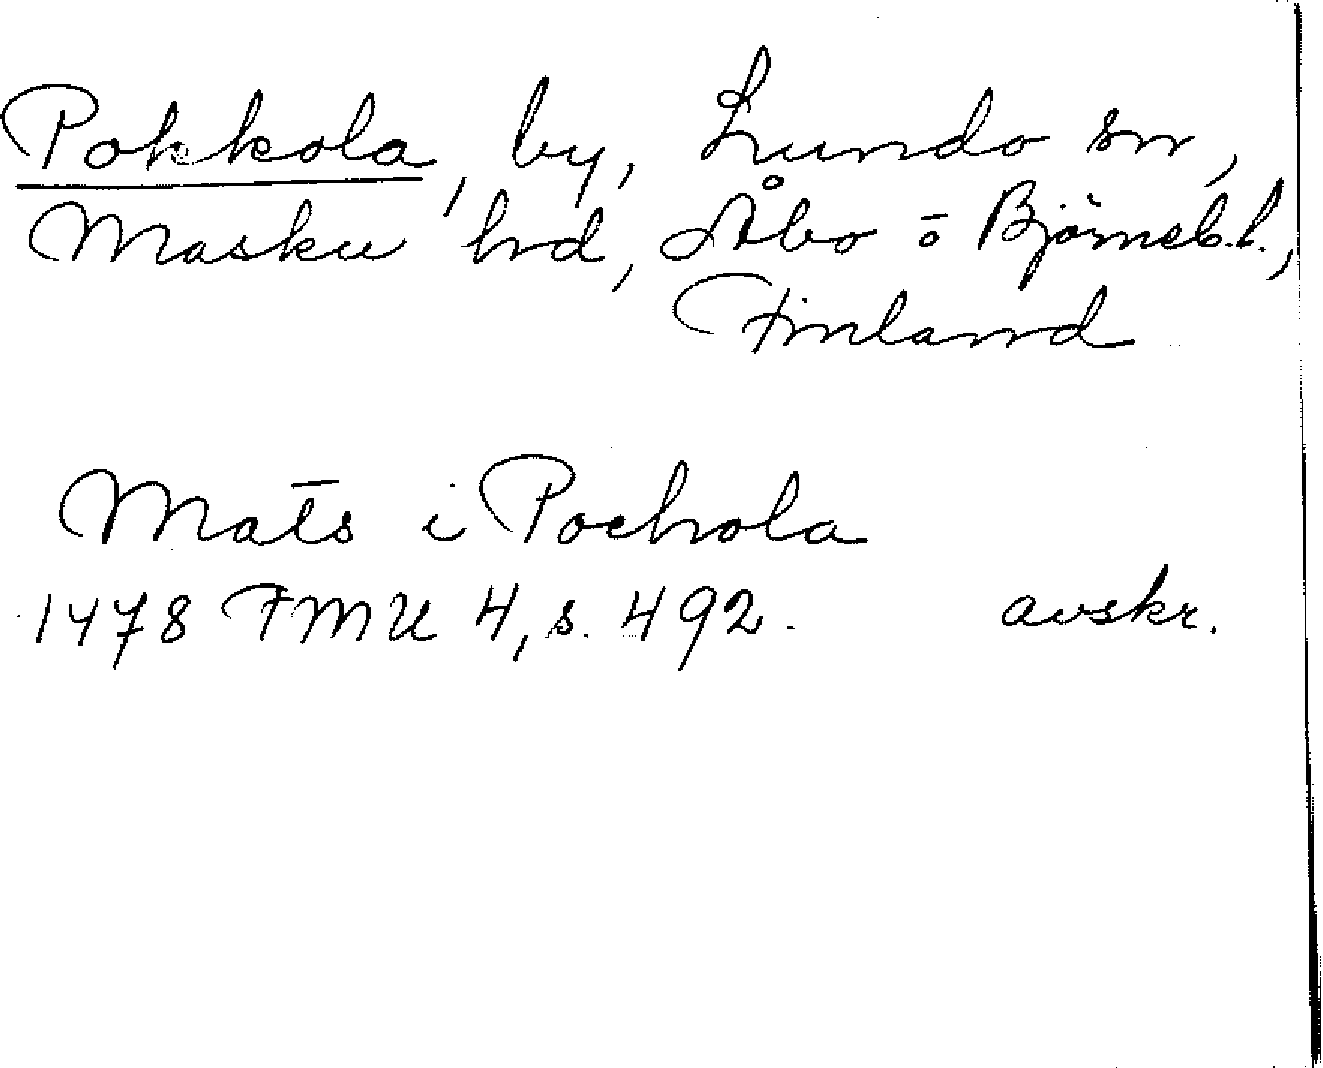 Pokkola, by, Lundo sn,
Masku hd, Åbo o Björneb. l.,
Finland
Mats i Pochola
1478 FMU 4, s. 492. avskr.